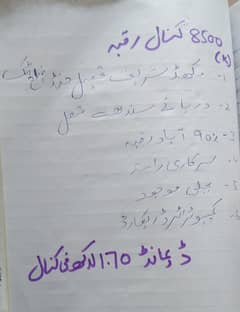 8500 کنال رقبہ
(K)
1- مکھڈ شریف تحصیل جنڈ ضلع اٹک
2- دریائے سندھ سے متصل
3- 90% آباد رقبہ
4- سرکاری راستہ
5- بجلی موجود
6- کمپیوٹرائزڈ ریکارڈ
ڈیمانڈ 1.70 لاکھ فی کنال